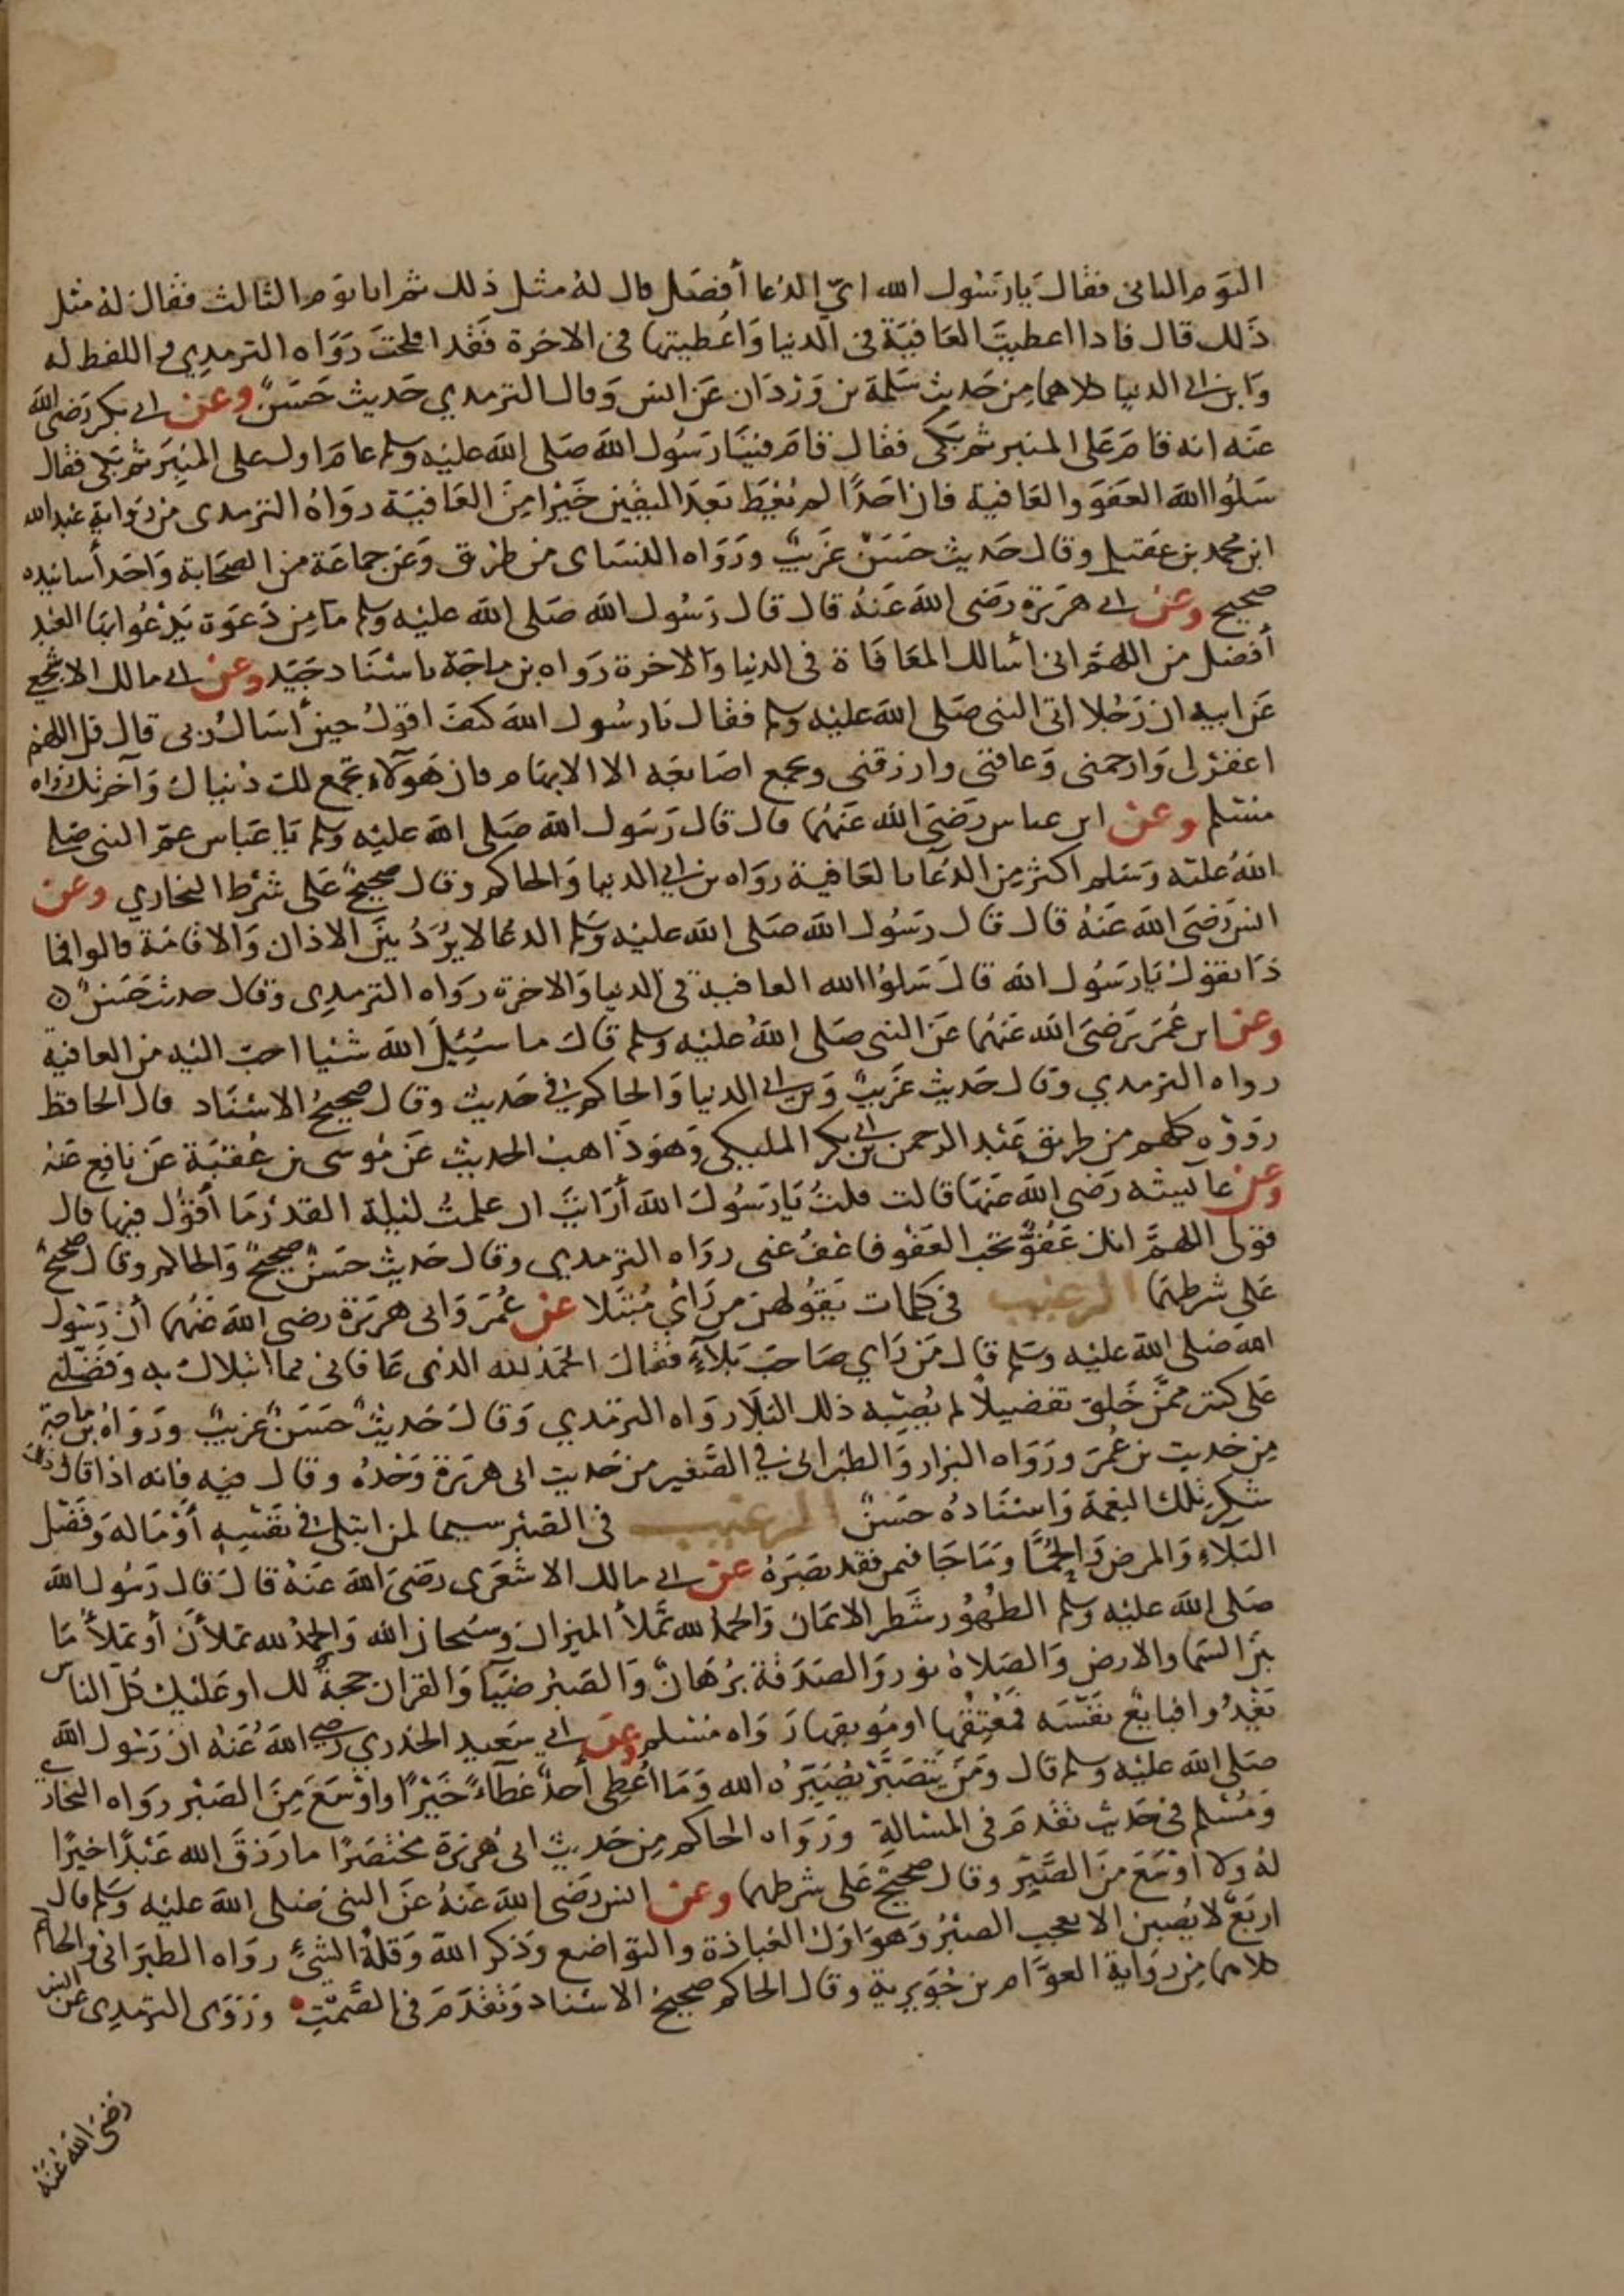 اليوم الثاني فقال يا رسول الله اي الدعا أفضل قال له مثل ذلك ثم اتاه يوم الثالث فقال له مثل
ذلك قال فاذا اعطيت العافية في الدنيا وأعطيتها في الاخرة فقد افلحت رواه الترمدي واللفظ له
وابن ابي الدنيا كلاهما من حديث سلمة بن وردان عن انس وقال الترمدي حديث حسن وعن ابي بكر رضي الله
عنه انه قام على المنبر ثم بكى فقال قام فينا رسول الله صلى الله عليه وسلم عام اول على المنبر ثم بكى فقال
سلوا الله العفو والعافية فان احدًا لم يعط بعد اليقين خيرا من العافية رواه الترمدى من رواية عبد الله
ابن محمد بن عقيل وقال حديث حسن غريب ورواه النساى من طرق وعن جماعة من الصحابة واحد أسانيده
صحيح وعن ابي هريرة رضي الله عنه قال قال رسول الله صلى الله عليه وسلم ما من دعوة يدعوا بها العبد
أفضل من اللهم اني أسالك المعافاة في الدنيا والاخرة رواه بن ماجة باسناد جيد وعن ابي مالك الاشجعي
عن ابيه ان رجلا اتى النبي صلى الله عليه وسلم فقال يا رسول الله كيف اقول حين أسال ربي قال قل اللهم
اغفر لي وارحمني وعافني وارزقني وبجمع اصابعه الا الابهام فان هولاء تجمع لك دنياك وآخرتك رواه
مسلم وعن ابن عباس رضي الله عنهما قال قال رسول الله صلى الله عليه وسلم يا عباس عم النبي صلى
الله عليه وسلم اكثر من الدعا بالعافية رواه بن ابي الدنيا والحاكم وقال صحيح على شرط البخاري وعن
انس رضي الله عنه قال قال رسول الله صلى الله عليه وسلم الدعا لا يرد بين الاذان والاقامة قالوا فما
ذا نقول يا رسول الله قال سلوا الله العافية في الدنيا والاخرة رواه الترمدي وقال حديث حسن
وعن ابن عمر رضي الله عنهما عن النبي صلى الله عليه وسلم قال ما سئل الله شيئا احب اليه من العافية
رواه الترمدي وقال حديث غريب وبن ابي الدنيا والحاكم في حديث وقال صحيح الاسناد قال الحافظ
رووه كلهم من طريق عبد الرحمن بن ابي بكر المليكي وهو ذاهب الحديث عن موسى بن عقبة عن نافع عنه
وعن عايشه رضي الله عنها قالت قلت يا رسول الله أرايت ان علمت ليلة القدر ما أقول فيها قال
قولي اللهم انك عفو تحب العفو فاعف عني رواه الترمدي وقال حديث حسن صحيح والحاكم وقال صحيح
على شرطهما الترغيب في كلمات يقولهن من راي مبتلا عن عمر وابي هريرة رضي الله عنهما أن رسول
الله صلى الله عليه وسلم قال من راي صاحب بلاء فقال الحمد لله الذي عافاني مما ابتلاك به وفضلني
على كثير ممن خلق تفضيلاً لم يصبه ذلك البلاء رواه الترمدي وقال حديث حسن غريب ورواه بن ماجة
من حديث بن عمر ورواه البزار والطبراني في الصغير من حديث ابي هريرة وحده وقال فيه فانه اذا قال ذلك
شكر تلك النعمة واسناده حسن الترغيب في الصبر سيما لمن ابتلي في نفسه أو ماله وفضل
البلاء والمرض والحما وما جا فيمن فقد بصره عن ابي مالك الاشعري رضي الله عنه قال قال رسول الله
صلى الله عليه وسلم الطهور شطر الايمان والحمد لله تملأ الميزان وسبحان الله والحمد لله تملأن أو تملأ ما
بين السما والارض والصلاة نور والصدقة برهان والصبر ضيآ والقران حجة لك او عليك كل الناس
يغدوا فبايع نفسه فمعتقها او موبقها رواه مسلم وعن ابي سعيد الخدري رضي الله عنه ان رسول الله
صلى الله عليه وسلم قال ومن يتصبر يصبره الله وما اعطي أحد عطآءً خيرًا واوسع من الصبر رواه البخاري
ومسلم في حديث تقدم في المسالة ورواه الحاكم من حديث ابي هريرة مختصرًا ما رزق الله عبدًا خيرًا
له ولا اوسع من الصبر وقال صحيح على شرطهما وعن انس رضي الله عنه عن النبي صلى الله عليه وسلم قال
اربع لا يصبن الا بعجب الصبر وهو اول العبادة والتواضع وذكر الله وقلة الشيء رواه الطبراني والحاكم
كلاهما من رواية العوام بن جويرية وقال الحاكم صحيح الاسناد وتقدم في الصمت وروى الترمدي عن انس
رضي الله عنه